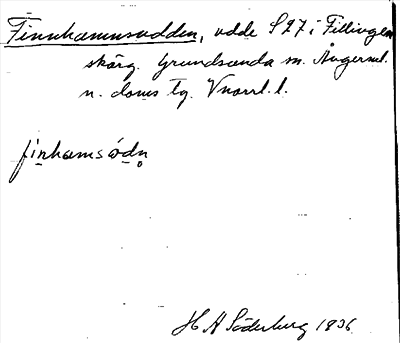 Finnhamnsudden, udde S 27 i Fillingen
skärg. Grundsunda sn. Ångerml.
n. doms tg. Vnorrl. l.
finhamsødn
H A Söderberg 1936